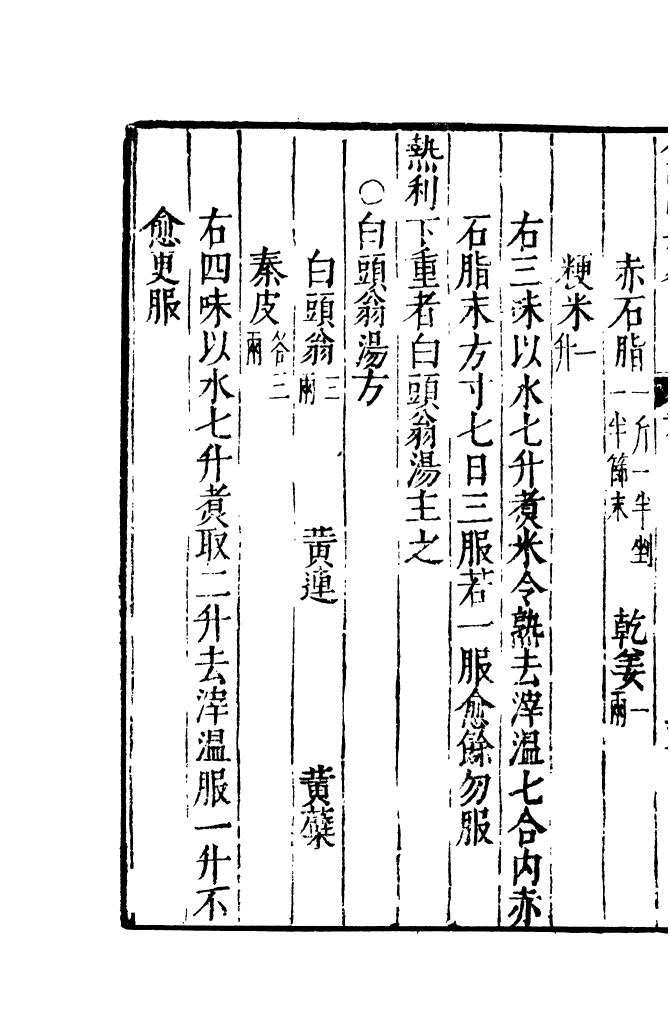 赤石脂一斤一半剉一半篩末 乾姜一兩
粳米一升
右三味以水七升煑米令熟去滓温七合内赤
石脂末方寸七日三服若一服愈餘勿服
熱利下重者白頭翁湯主之
○白頭翁湯方
白頭翁三兩 黄連 黄蘗
秦皮各三兩
右四味以水七升煑取二升去滓温服一升不
愈更服